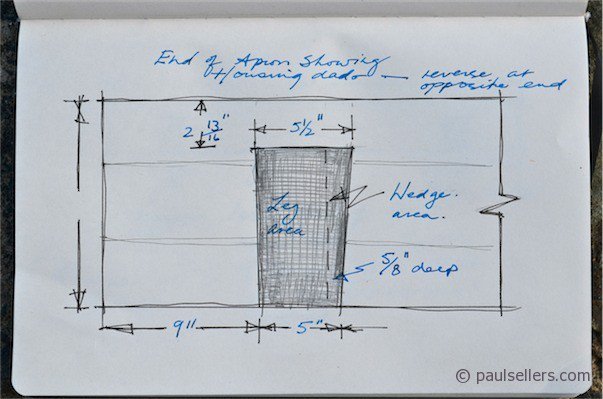 End of Apron Showing
Housing dado — reverse at
opposite end
2 13/16"
5 1/2"
Leg
area
Wedge.
area.
5/8" deep
9"
5"
© paulsellers.com